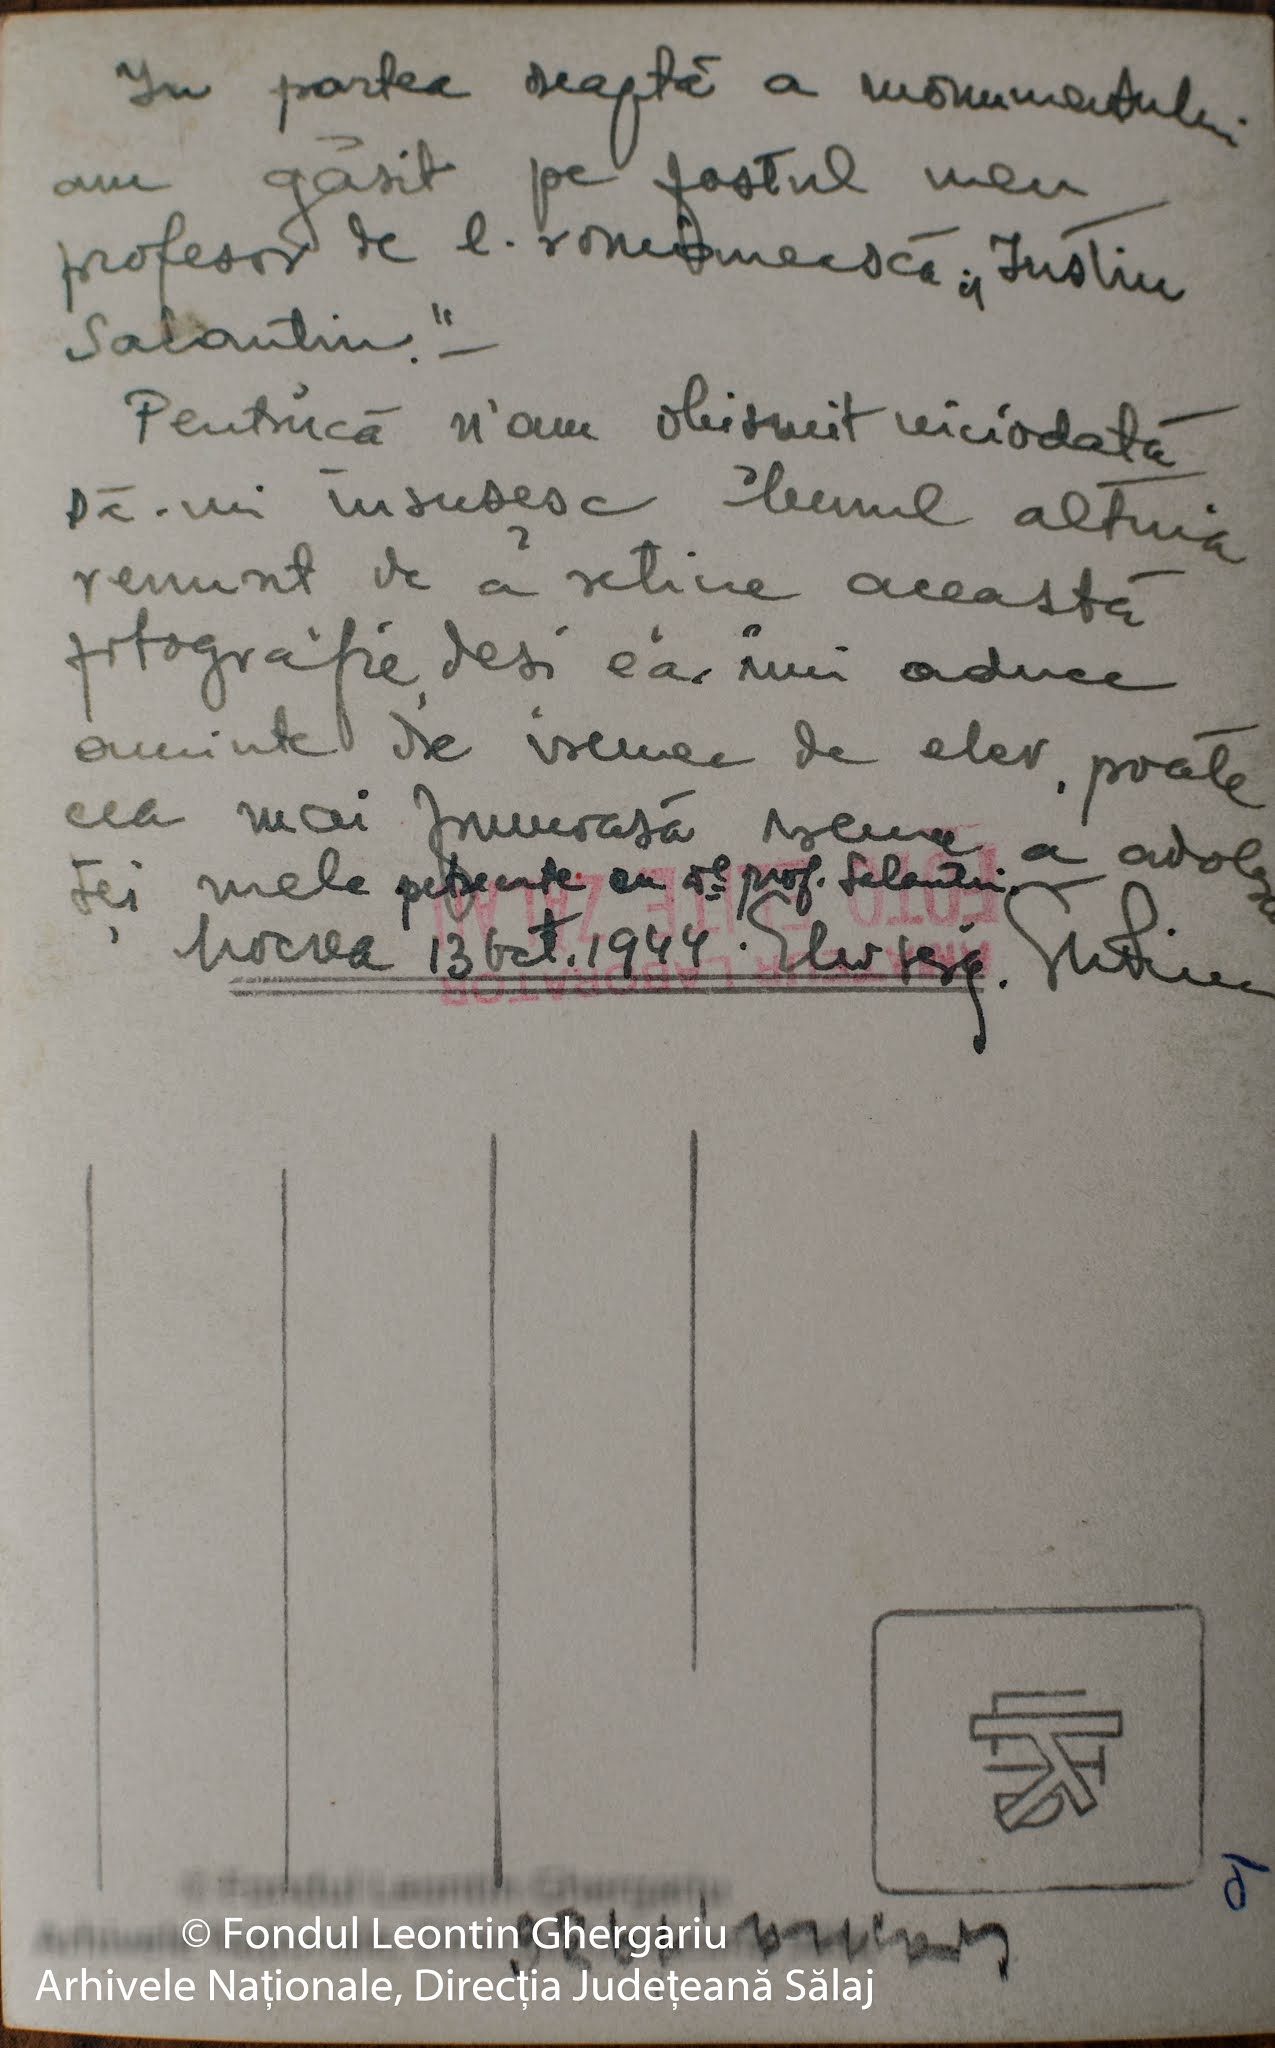 In partea dreaptă a monumentului
am găsit pe fostul meu
profesor de l. românească „Iustin
Salantiu."—
Pentrucă n'am obisnuit niciodată
să-mi însusesc bunul altuia
renunt de a retine această
fotografie, desi ea îmi aduce
aminte de vremea de elev, poate
cea mai frumoasă vreme a adolescen
ței mele petrecute cu dl prof. Salantiu.
13 Oct. 1944.
FOTO ELITE ZALAU
LABORATOR
© Fondul Leontin Ghergariu
Arhivele Naționale, Direcția Județeană Sălaj